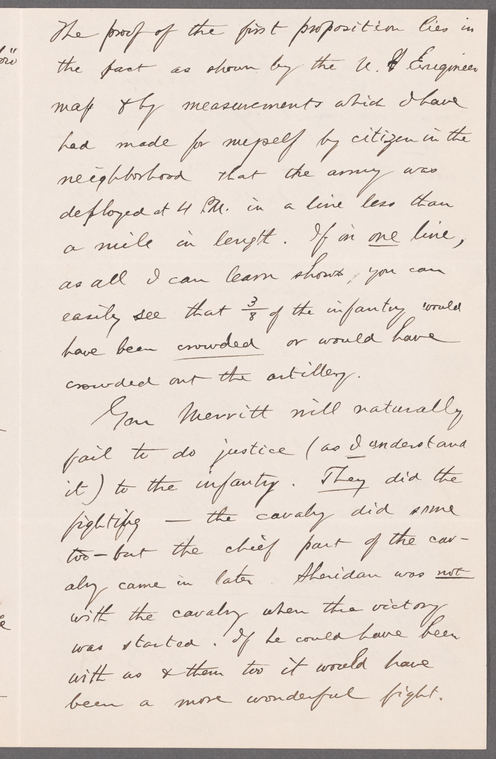 The proof of the first proposition lies in
the fact as shown by the U. S Engineer
map & by measurements which I have
had made for myself by citizen in the
neighborhood that the army was
deployed at 4 P.M. in a line less than
a mile in length. If in one line,
as all I can learn shows, you can
easily see that 3/8 of the infantry would
have been crowded or would have
crowded out the artillery.
Gen Merritt will naturally
fail to do justice (as I understand
it) to the infantry. They did the
fighting — the cavalry did some
too — but the chief part of the cav-
alry came in later. Sheridan was not
with the cavalry when the victory
was started. If he could have been
with us & them too it would have
been a more wonderful fight.